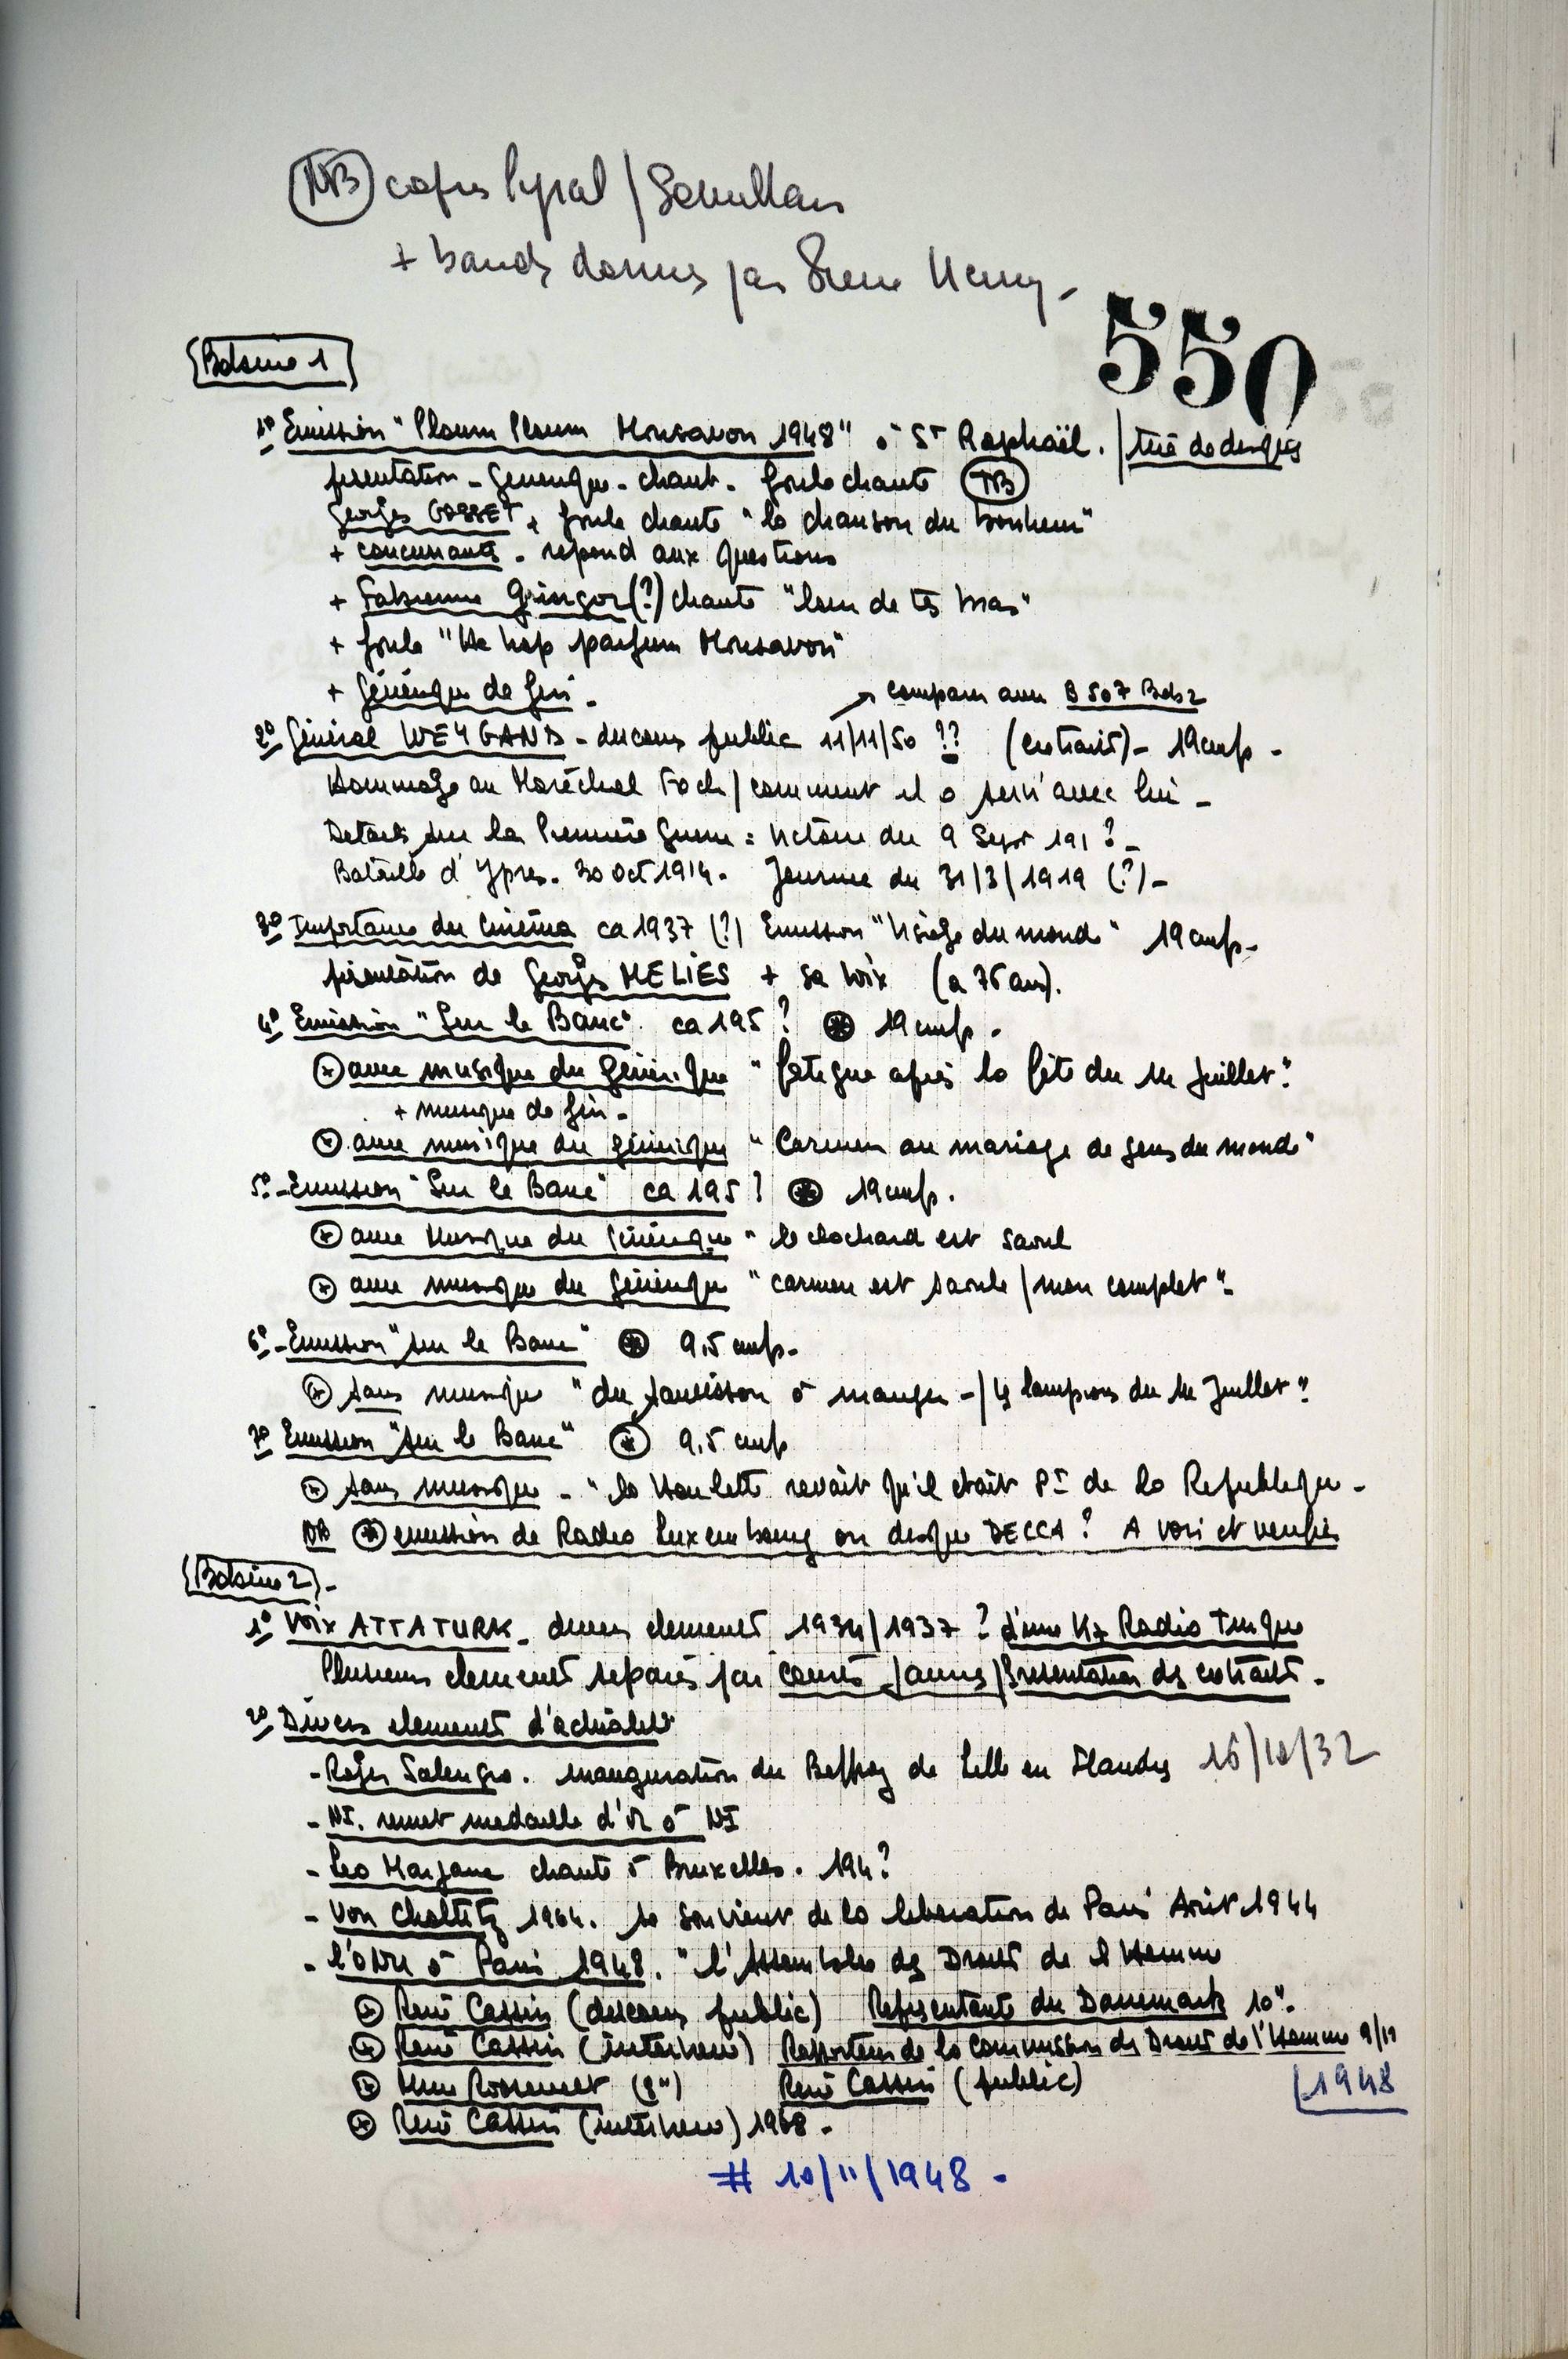 NB copies Pyral /
+ bandes données par
550
Bobine 1
1º Emission "Ploum Ploum Monsavon 1948" à St Raphaël. / tiré de disques
presentation - Generique - chant - foule chante NB
Georges GOSSET + foule chante "la chanson du bonheur"
+ concurrents - repond aux questions
+ Fabienne Gringor (?) chante "loin de tes bras"
+ foule "He hop parfum Monsavon"
+ Générique de fin -
→ comparer avec B 507 Bob 2
2º Général WEYGAND - discours public 11/11/50 ?? (extraits) - 19 cm/s -
Hommage au Maréchal Foch / comment il a servi avec lui -
Details sur la Première Guerre : Victoire du 9 Sept 191 ? -
Bataille d'Ypres. 30 Oct 1914. Journée du 31/3/1919 (?) -
3º Importance du Cinéma ca 1937 (?) Emission "Visage du monde" 19 cm/s -
présentation de Georges MELIES + sa voix (a 76 ans).
4º Emission "Sur le Banc" ca 195 ? 19 cm/s -
avec musique du générique "fatigue après la fête du 14 Juillet"
+ musique de fin -
avec musique du générique "Carmen au mariage de gens du monde"
5º - Emission "Sur le Banc" ca 195 ? 19 cm/s.
avec Musique du Générique "le clochard est saoul
avec musique du Générique "Carmen est saoule / mon complet"
6º - Emission "Sur le Banc" 9,5 cm/s -
sans musique "du saucisson à manger - / les lampions du 14 Juillet"
7º Emission "Sur le Banc" 9,5 cm/s
sans musique - "la Hurlette revait qu'il etait Pt de la Republique -
NB emission de Radio Luxembourg ou disque DECCA ? A voir et verifier
Bobine 2 -
1º Voix ATTATURK - divers elements 1934/1937 ? d'une K7 Radio Turque
Plusieurs elements separés par / Presentation des extraits -
2º Divers elements d'actualités
- Roger Salengro. inauguration du Beffroy de Lille en Flandres 16/10/32
- NI. remet medaille d'or à NI
- Leo Marjane chante à Bruxelles. 194?
- Von Choltitz 1964. se souvient de la liberation de Paris Août 1944
- l'ONU à Paris 1948. "l'Assemblee des Droits de l'Homme
René Cassin (discours public) Representante du Danemark 10".
René Cassin (interview) Rapporteur de la Commission des Droits de l'Homme 9/11
Mme Roosevelt (8") René Cassin (public) 1948
René Cassin (interview) 1968 -
# 10/11/1948 -